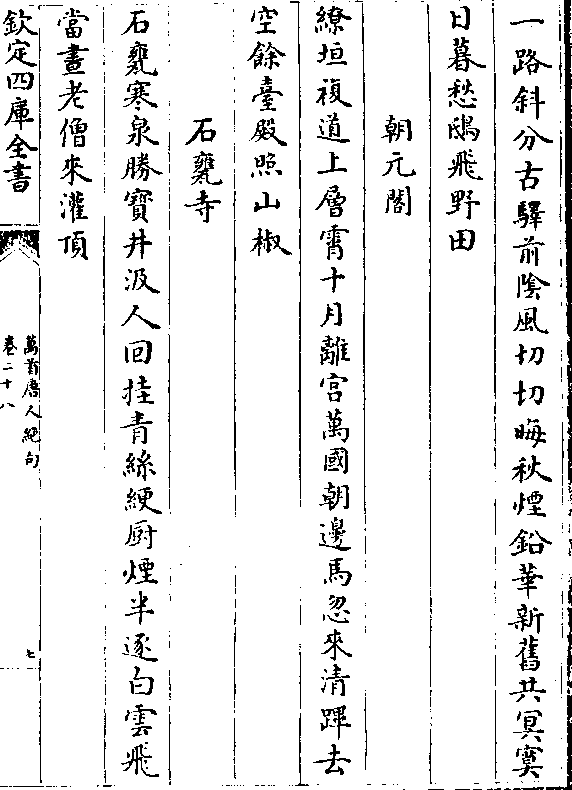 一路斜分古驛前陰風切切晦秋煙鉛華新舊共冥寞
日暮愁鴟飛野田
朝元閣
繚垣複道上層霄十月離宮萬國朝邊馬忽來清蹕去
空餘臺殿照山椒
石甕寺
石甕寒泉勝寶井汲人回挂青絲綆厨煙半逐白雲飛
當晝老僧來灌頂
欽定四庫全書
萬首唐人絶句
卷二十八
七